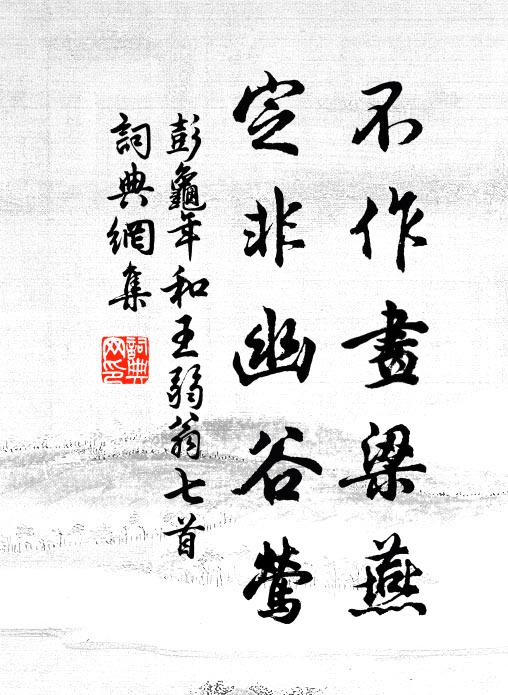 不作畫梁燕
定非幽谷鶯
彭龜年和王弱翁七首
詞典網集
詞典
网印